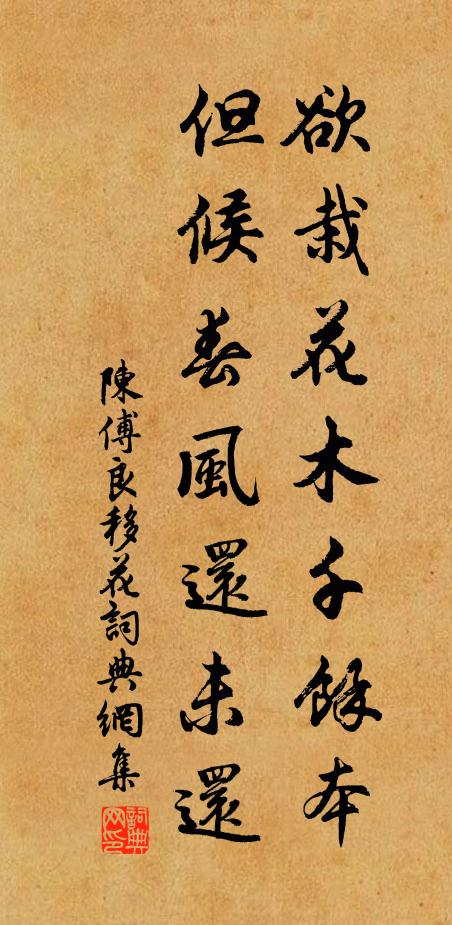 欲栽花木千餘本
但候春風還未還
陳傅良移花詞典網集
詞典網印